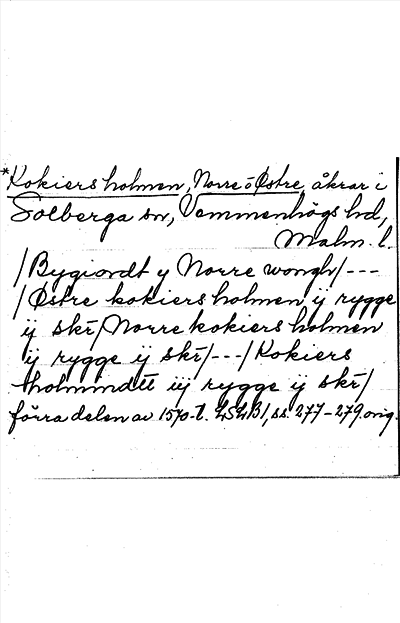 *Kokiers holmen, Norre ō Østre, åkrar i
Solberga sn, Vemmenhögs hd,
Malm. l.
/Bygiordt y Norre wongh/---
/Østre kokiers holmen ij rygge
ij skr̄/Norre kokiers holmen
ij rygge ij skr̄/---/Kokiers
holmmdtt iij rygge ij skr̄/
förra delen av 1570-t. LSLB1, ss. 277-279. orig.